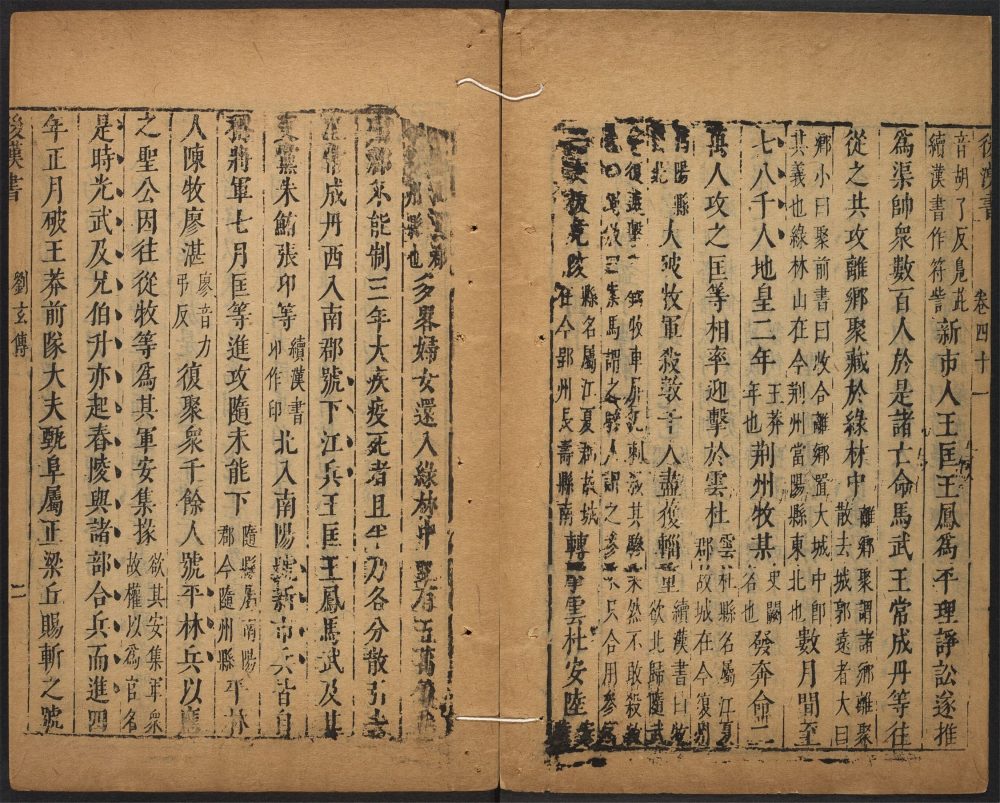 後漢書 卷四十一
音胡了反鳧茈續漢書作符訾新市人王匡王鳳為平理諍訟遂推
為渠帥衆數百人於是諸亡命馬武王常成丹等往
從之共攻離鄉聚臧於綠林中離鄉聚謂諸鄉離聚散去城郭遠者大曰
鄉小曰聚前書曰收合離鄉置大城中即其義也綠林山在今荆州當陽縣東北也數月間至
七八千人地皇二年王莽年也荆州牧某史闕名也發奔命二
萬人攻之匡等相率迎擊於雲杜雲杜縣名屬江夏郡故城在今復州
沔陽縣西北大破牧軍殺數千人盡獲輜重續漢書曰牧欲北歸隨武
等復遮擊之鈎牧車屏泥刺殺其驂乘然不敢殺牧
馬謂之驂人謂之參乘只合用參
攻拔竟陵縣名屬江夏郡故城在今郢州長壽縣南轉擊雲杜安陸
州縣也多畧婦女還入綠林中至有五萬餘口
州郡不能制三年大疾疫死者且半乃各分散引去
王常成丹西入南郡號下江兵王匡王鳳馬武及其
支黨朱鮪張卬等續漢書卬作印北入南陽號新市兵皆自
稱將軍七月匡等進攻隨未能下隨縣屬南陽郡今隨州縣平林
人陳牧廖湛廖音力弔反復聚衆千餘人號平林兵以應
之聖公因往從牧等為其軍安集掾欲其安集軍衆故權以為官名
是時光武及兄伯升亦起舂陵與諸部合兵而進四
年正月破王莽前隊大夫甄阜屬正梁丘賜斬之號
後漢書 劉玄傳 二